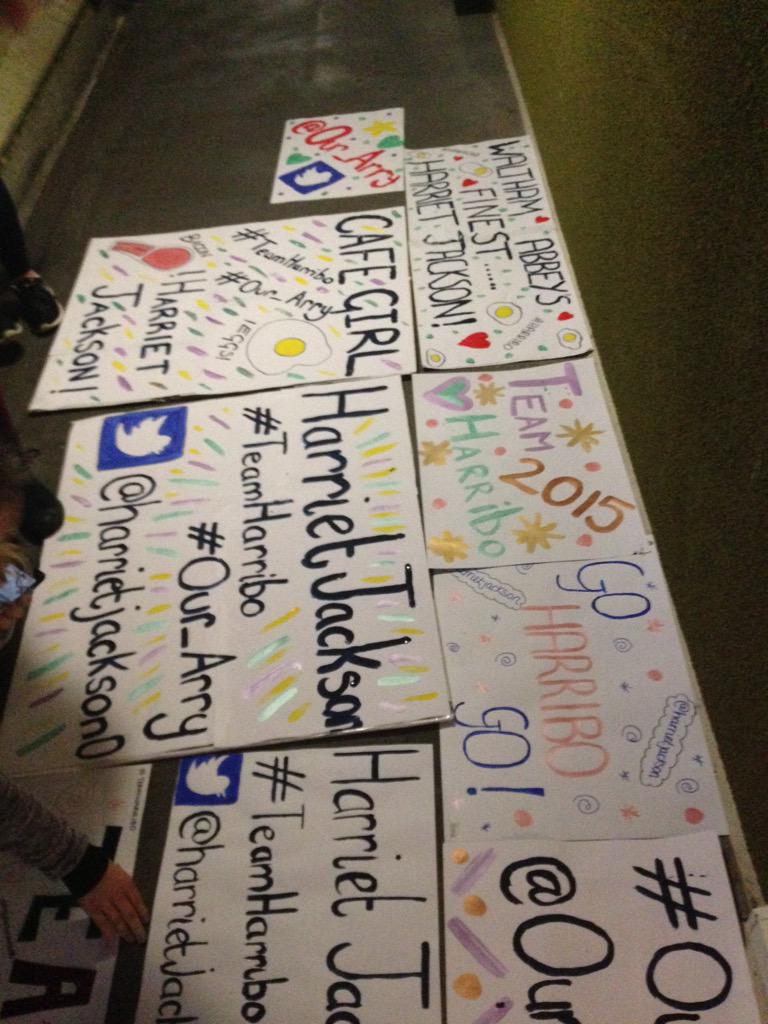 @Our_Arry
WALTHAM ABBEYS
FINEST......
HARRIET JACKSON!
#HARRIBO
CAFE GIRL
#TeamHarribo
#Our_Arry
! EGGS!
BACON
! HARRIET
JACKSON!
TEAM
2015
HARRIBO
Harriet Jackson
#TeamHarribo
#Our_Arry
@harrietjackson0
GO
HARRIBO
GO!
@harrietjackson
Harriet Jac
#TeamHarribo
@harrietjac
#Ou
@Our
TEA